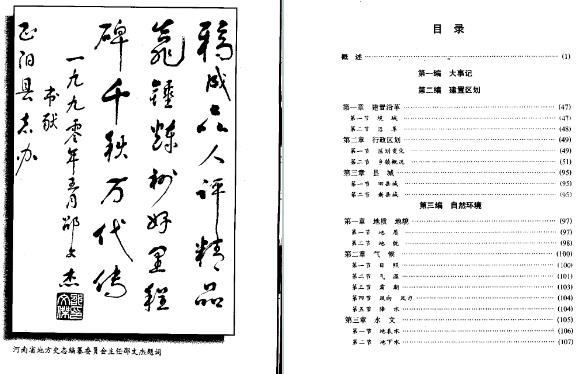 稿成众人评精品
靠锤炼树好里程
碑千秋万代传
一九九零年五月邵文杰
书献
正阳县志办
河南省地方史志编纂委员会主任邵文杰题词
目 录
概 述 (1)
第一编 大事记
第二编 建置区划
第一章 建置沿革 (47)
第一节 境 域 (47)
第二节 沿 革 (48)
第二章 行政区划 (49)
第一节 区划变化 (49)
第二节 乡镇概况 (51)
第三章 县 城 (95)
第一节 旧县城 (95)
第二节 新县城 (95)
第三编 自然环境
第一章 地质 地貌 (97)
第一节 地 质 (97)
第二节 地 貌 (98)
第二章 气 候 (100)
第一节 日 照 (100)
第二节 气 温 (101)
第三节 霜 期 (103)
第四节 风向 风力 (104)
第五节 降 水 (104)
第三章 水 文 (105)
第一节 地表水 (106)
第二节 地下水 (107)